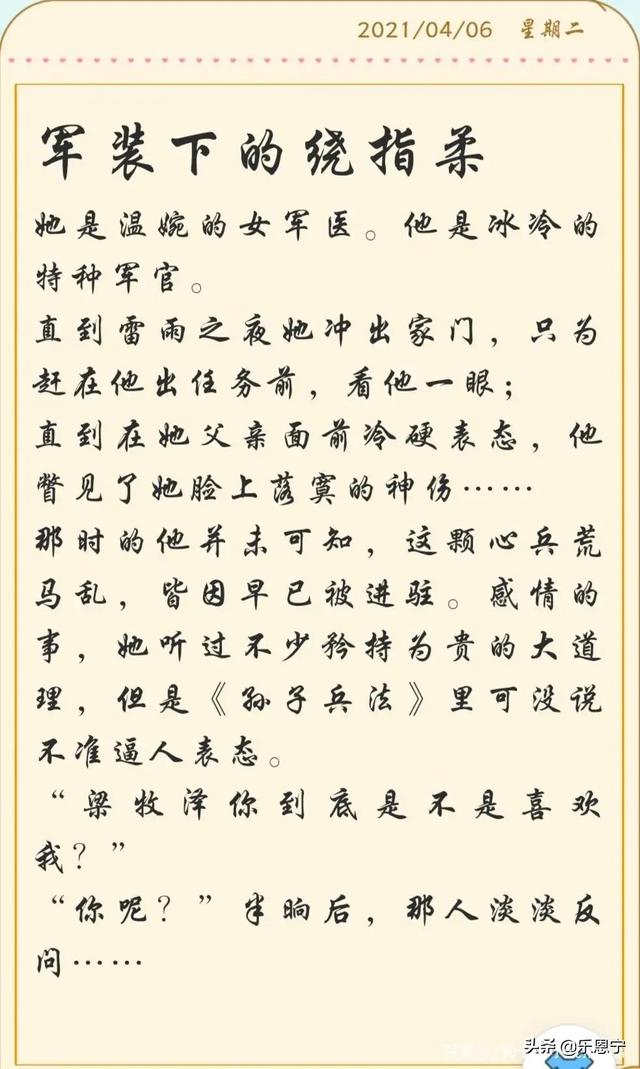 2021/04/06 星期二
军装下的绕指柔
她是温婉的女军医。他是冰冷的
特种军官。
直到雷雨之夜她冲出家门，只为
赶在他出任务前，看他一眼；
直到在她父亲面前冷硬表态，他
瞥见了她脸上落寞的神伤……
那时的他并未可知，这颗心兵荒
马乱，皆因早已被进驻。感情的
事，她听过不少矜持为贵的大道
理，但是《孙子兵法》里可没说
不准逼人表态。
“梁牧泽你到底是不是喜欢
我？”
“你呢？”半晌后，那人淡淡反
问……
头条@乐恩宁